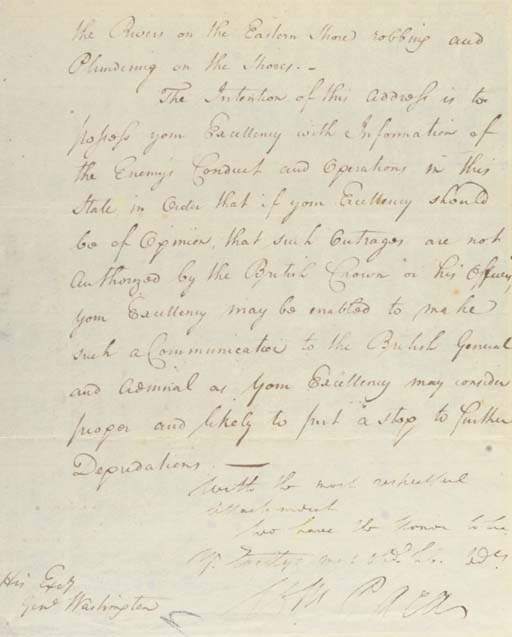 the Rivers on the Eastern Shore robbing and
Plundering on the Shores. –
The Intention of this Address is to
possess your Excellency with Information of
the Enemys Conduct and Operations in this
State in Order that if your Excellency should
be of Opinion, that such Outrages are not
Authorized by the British Crown or his Officers,
your Excellency may be enabled to make
such a Communication to the British General
and Admiral as your Excellency may consider
proper and likely to put a stop to further
Depredations. —
With the most respectful
attachment
We have the honor to be
Yr. Excellys most obdt. hb.
Wm Paca
His Excy
Genl Washington